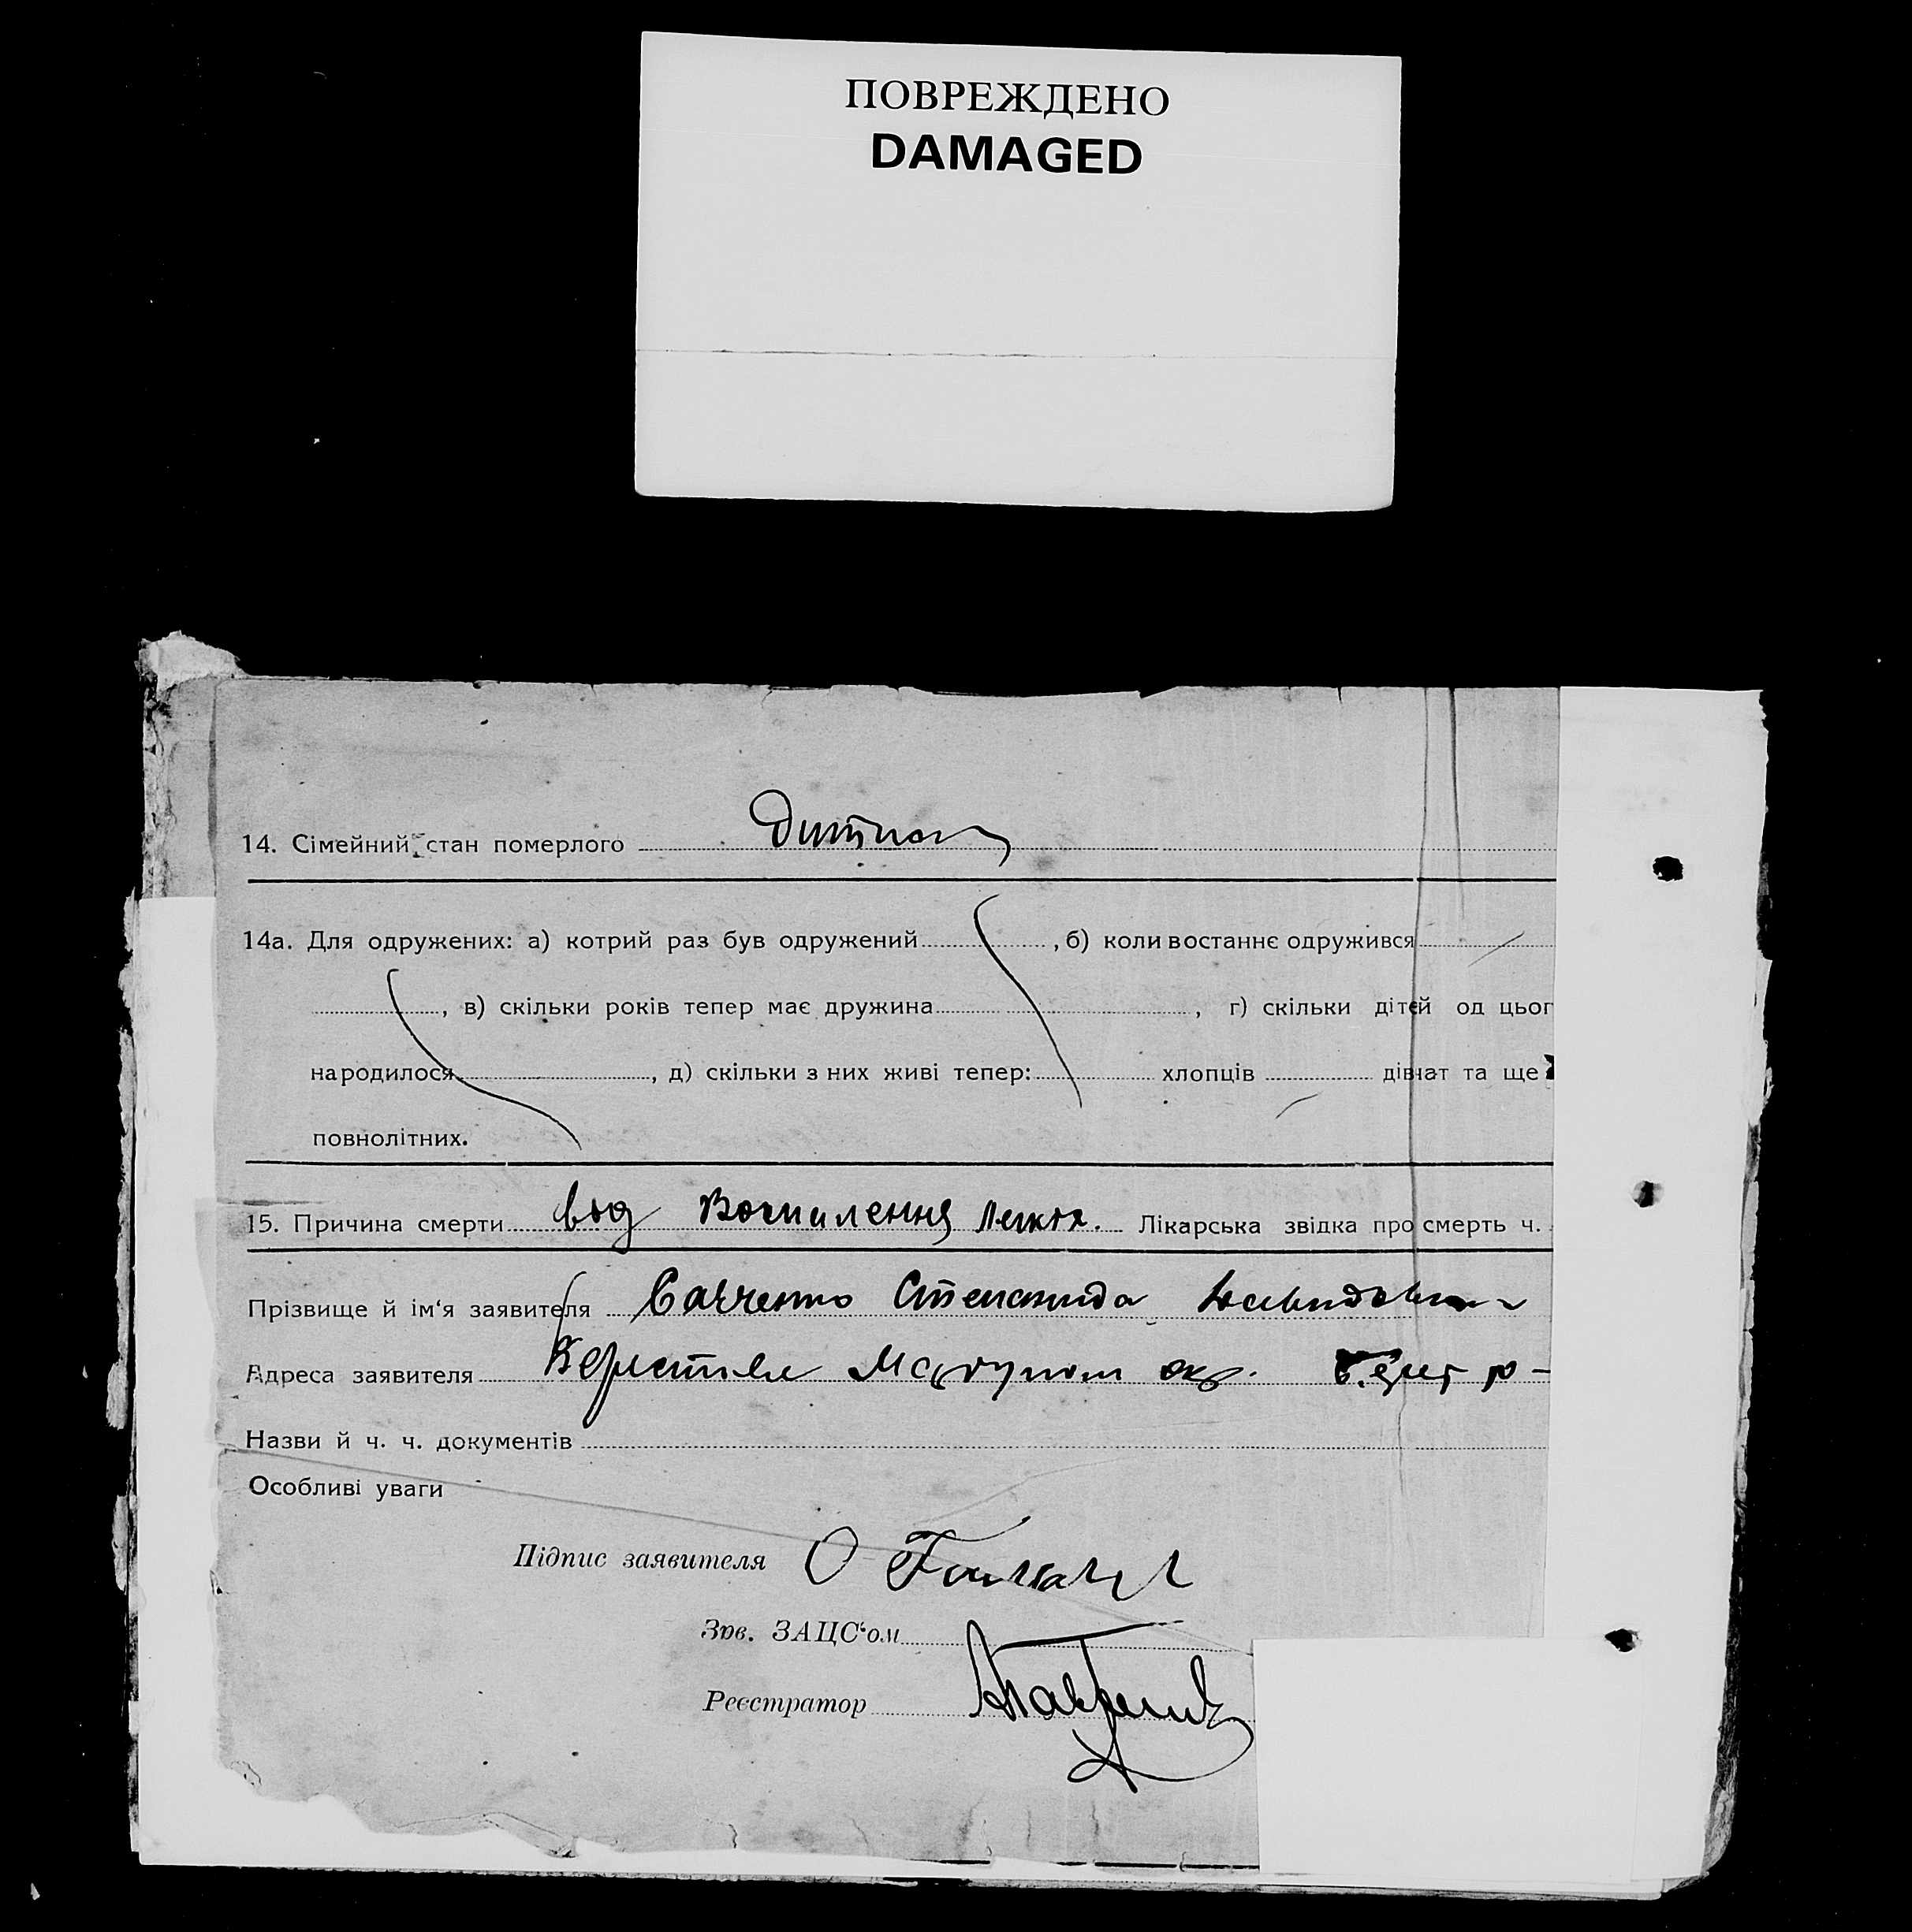 ПОВРЕЖДЕНО
DAMAGED
14. Сімейний стан померлого
14а. Для одружених: а) котрий раз був одружений , б) коли востаннє одружився
, в) скільки років тепер має дружина , г) скільки дітей од цьог
народилося , д) скільки з них живі тепер: хлопців дівчат та ще
повнолітних.
15. Причина смерти від Лікарська звідка про смерть ч.
Прізвище й ім‘я заявителя Савченко Степанида
Адреса заявителя окр.
Назви й ч. ч. документів
Особливі уваги
Підпис заявителя
Зав. ЗАЦС‘ом
Реєстратор